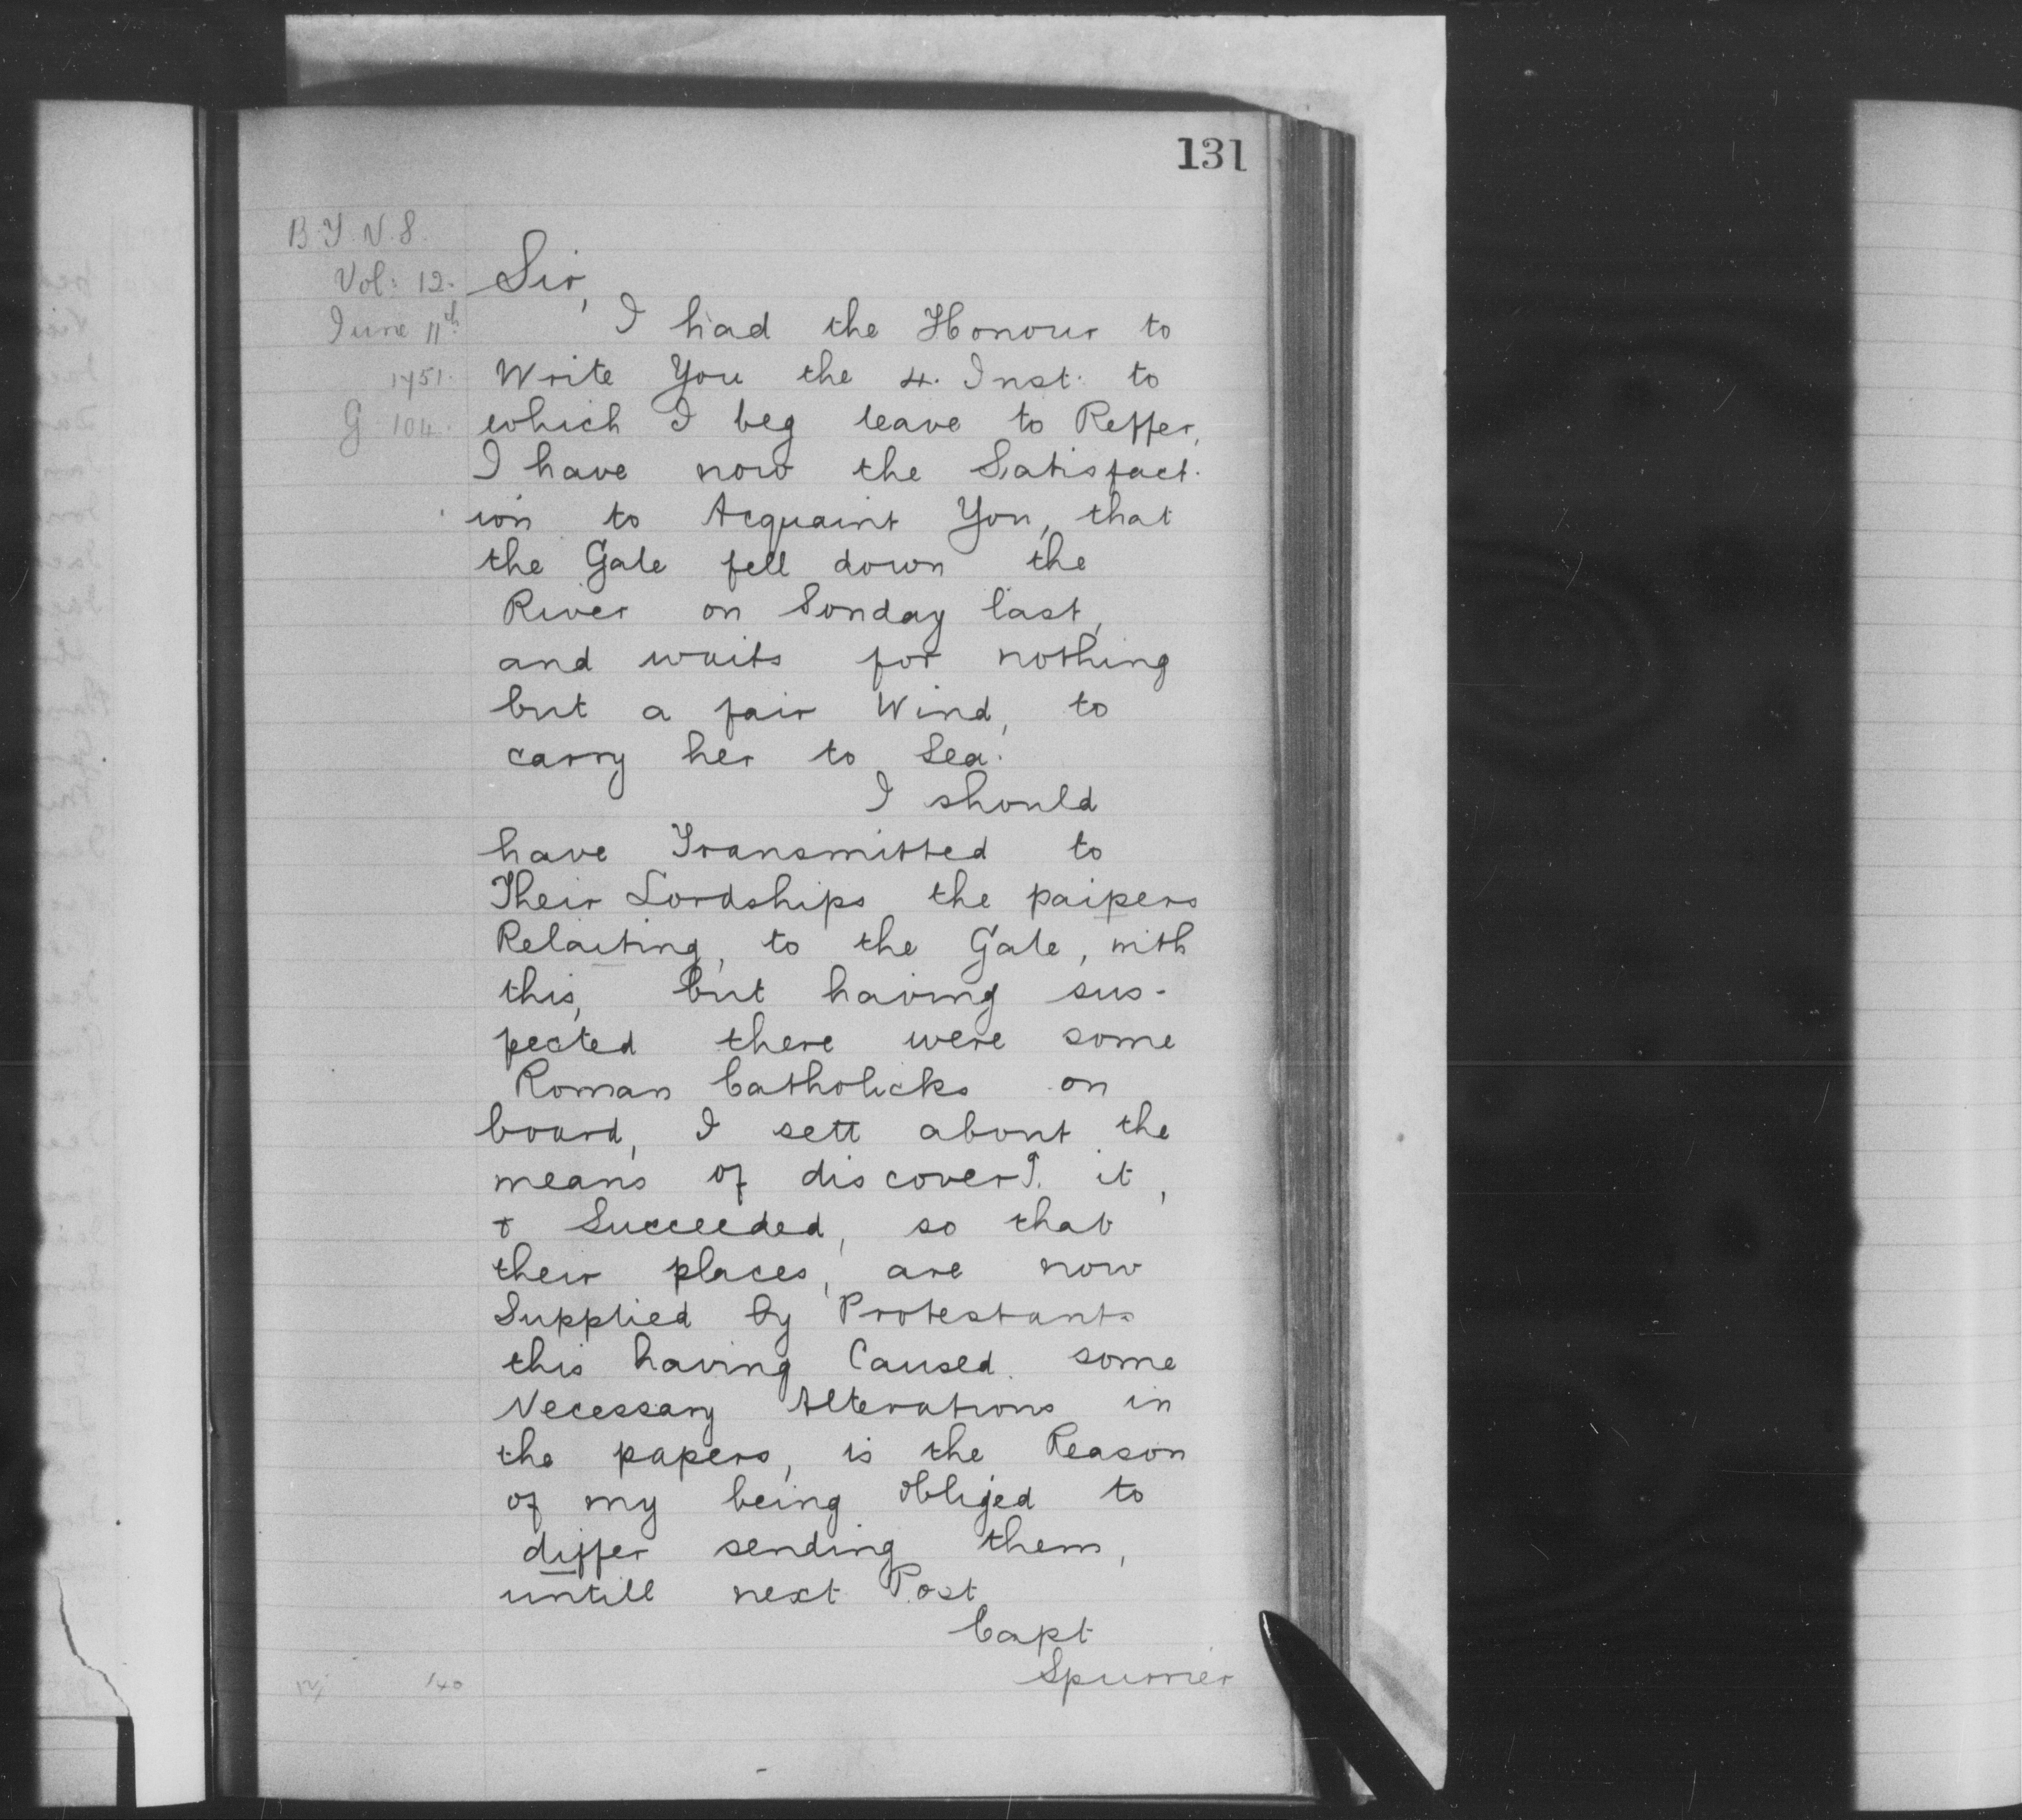 131
B.T.N.S.
Vol: 12.
June 11th
1751.
G. 104.
Sir,
I had the Honour to
Write You the 4. Inst: to
which I beg leave to Reffer,
I have now the Satisfact.
ion to Acquaint You, that
the Gale fell down the
River on Sonday last,
and waits for nothing
but a fair Wind, to
carry her to Sea.
I should
have Transmitted to
Their Lordships the paipers
Relaiting, to the Gale, with
this, but having sus-
pected there were some
Roman Catholicks on
board, I sett about the
means of discoverg. it,
& Succeeded, so that
their places, are now
Supplied by Protestants
this having Caused some
Necessary Alterations in
the papers, is the Reason
of my being obliged to
differ sending them,
untill next Post
Capt
Spurrier
140